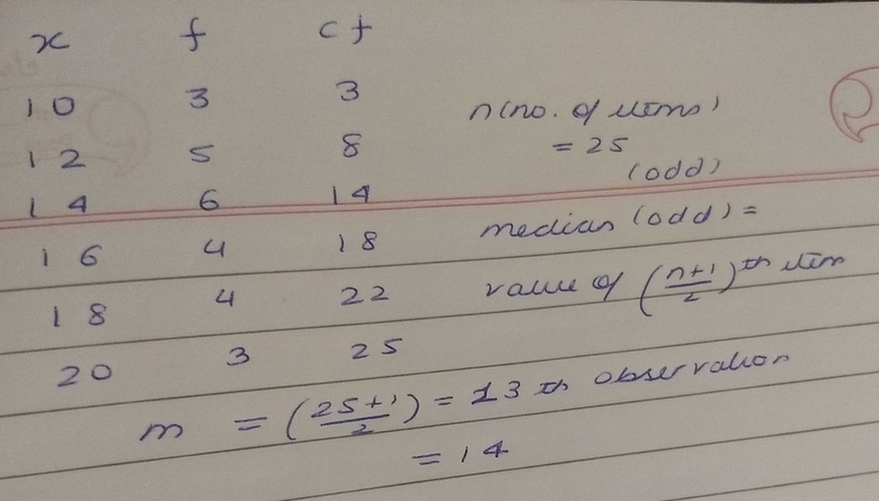 x f cf
10 3 3
12 5 8
14 6 14
16 4 18
18 4 22
20 3 25
n(no. of items)
= 25
(odd)
median (odd) =
value of (n+1/2)th item
m = (25+1/2) = 13 th observation
= 14